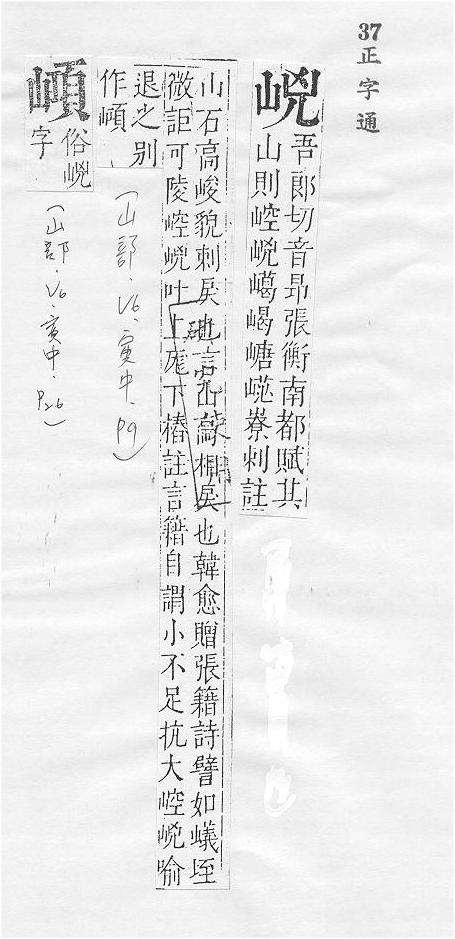 37正字通
吾郎切音昂張衡南都賦其
山則崆㟅嶱嵑嵣㟐嶚剌註
山石高峻貌刺戾也言
相戾也韓愈贈張籍詩譬如蟻垤
微詎可陵崆㟅叶上厐下椿註言籍自謂小不足抗大崆㟅喻
退之别
作
(山部·V6·寅中·P9)
俗㟅
字
(山部·V6·寅中·P26)